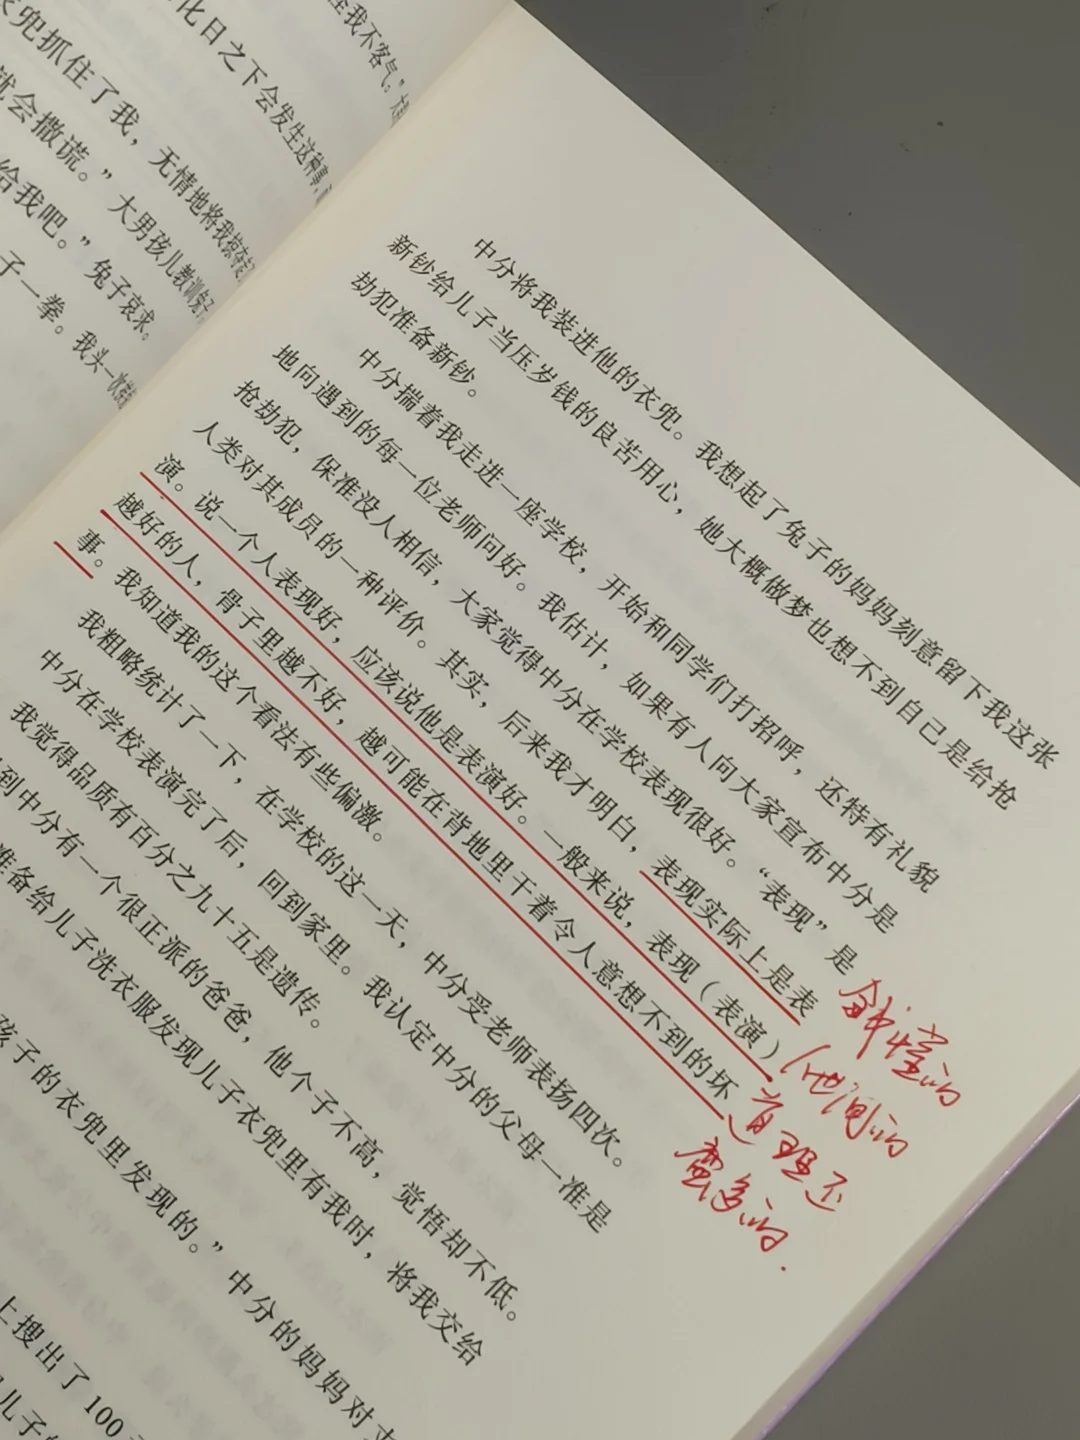 座我不客气。”大
化日之下会发生这种事，
衣兜抓住了我，无情地将我掠夺走
就会撒谎。”大男孩儿教训兔子
给我吧。”兔子哀求。
子一拳。我头一次
中分将我装进他的衣兜。我想起了兔子的妈妈刻意留下我这张
新钞给儿子当压岁钱的良苦用心，她大概做梦也想不到自己是给抢
劫犯准备新钞。
中分揣着我走进一座学校，开始和同学们打招呼，还特有礼貌
地向遇到的每一位老师问好。我估计，如果有人向大家宣布中分是
抢劫犯，保准没人相信，大家觉得中分在学校表现很好。“表现”是
人类对其成员的一种评价。其实，后来我才明白，表现实际上是表
演。说一个人表现好，应该说他是表演好。一般来说，表现（表演）
越好的人，骨子里越不好，越可能在背地里干着令人意想不到的坏
事。我知道我的这个看法有些偏激。
我粗略统计了一下，在学校的这一天，中分受老师表扬四次。
中分在学校表演完了后，回到家里。我认定中分的父母一准是
我觉得品质有百分之九十五是遗传。
到中分有一个很正派的爸爸，他个子不高，觉悟却不低。
准备给儿子洗衣服发现儿子衣兜里有我时，将我交给
孩子的衣兜里发现的。”中分的妈妈对
上搜出了100
儿子
懂的
人世间的
道理还
蛮多的.